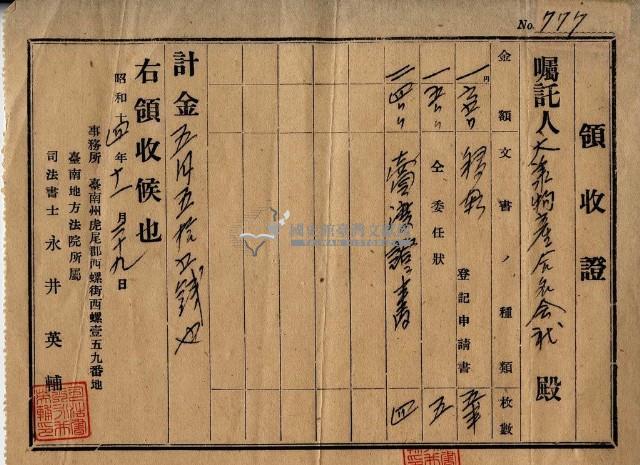 No. 777
領收證
囑託人 大承物產合名会社 殿
金額 文書ノ種類 枚數
登記申請書
仝 委任狀 五
賣渡證書 四
計金五円五拾五錢也
右領收候也
昭和十四年十一月二十九日
事務所 臺南州虎尾郡西螺街西螺壹五九番地
臺南地方法院所屬
司法書士 永井英輔
國史館臺灣文獻館
TAIWAN HISTORICA